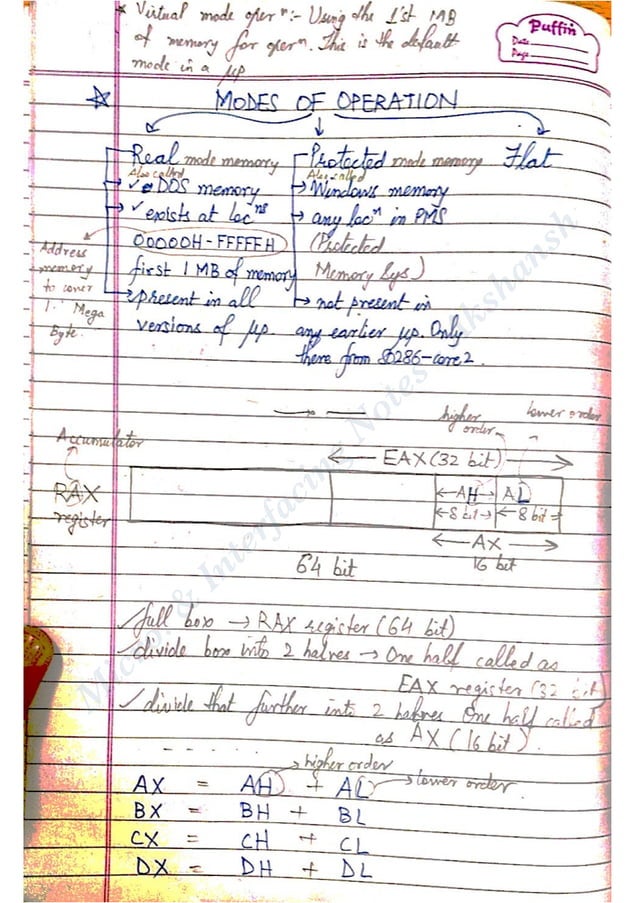 * Virtual mode operⁿ:- Using the 1'st MB
of memory for operⁿ. This is the default
mode in a μp
Puffin
Date
Page
MODES OF OPERATION
Real mode memory
Also called
→ ✓ DOS memory
→ ✓ exists at locⁿˢ
00000H-FFFFFH
first 1 MB of memory
→ present in all
versions of μp
Address
memory
to cover
1. Mega
Byte.
Protected mode memory
Also called
→ Windows memory
→ any locⁿ in PMS
(Protected
Memory Sys)
→ not present in
any earlier μp. Only
there from 80286-core2.
Flat
higher
order
lower order
Accumulator
← EAX (32 bit) →
RAX
register
←AH→ AL
←8 bit→ ←8 bit→
← AX →
64 bit
16 bit
✓ full box → RAX register (64 bit)
✓ divide box into 2 halves → One half called as
EAX register (32 bit)
✓ divide that further into 2 halves One half called
as AX (16 bit).
→ higher order
AX = AH + AL → lower order.
BX = BH + BL
CX = CH + CL
DX = DH + DL
& Interfacing Notes